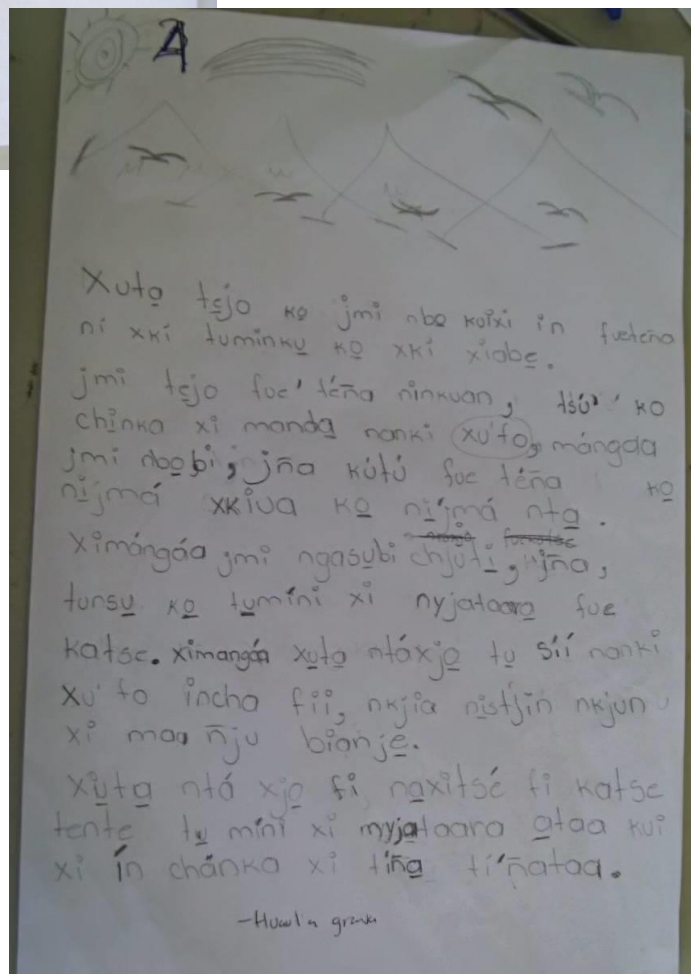 A
Xuta̱ te̱jo ko̱ jmi nbo̱ koixi in fueteña
ni xkí tuminku̱ ko̱ xkí xiobe̱.
jmi te̱jo fue' téña ninkuan, tsú' ko
chi̱nka xi manda̱ nanki xu'to̱, mángda
jmi nbo̱bi, jña kútú fue téña ko̱
ni̱jmá xkiua ko̱ ni̱'jmá nta̱.
ximángáa jmi ngasu̱bi chjúti̱, jña,
tunsu̱ ko̱ tu̱míni xi nyjataara̱ fue
katse. ximangáa xu̱ta̱ ntáxjo̱ tu̱ síí nanki
xu'to incha fii, nkjia ni̱stjin nkjun
xi maa ñju bianje̱.
xu̱ta̱ ntá xjo̱ fi na̱xitsé fi katse
tente tu̱ míni xi nyja̱taara a̱taa kui
xi ín chánka xi tíña̱ tí'ñataa.